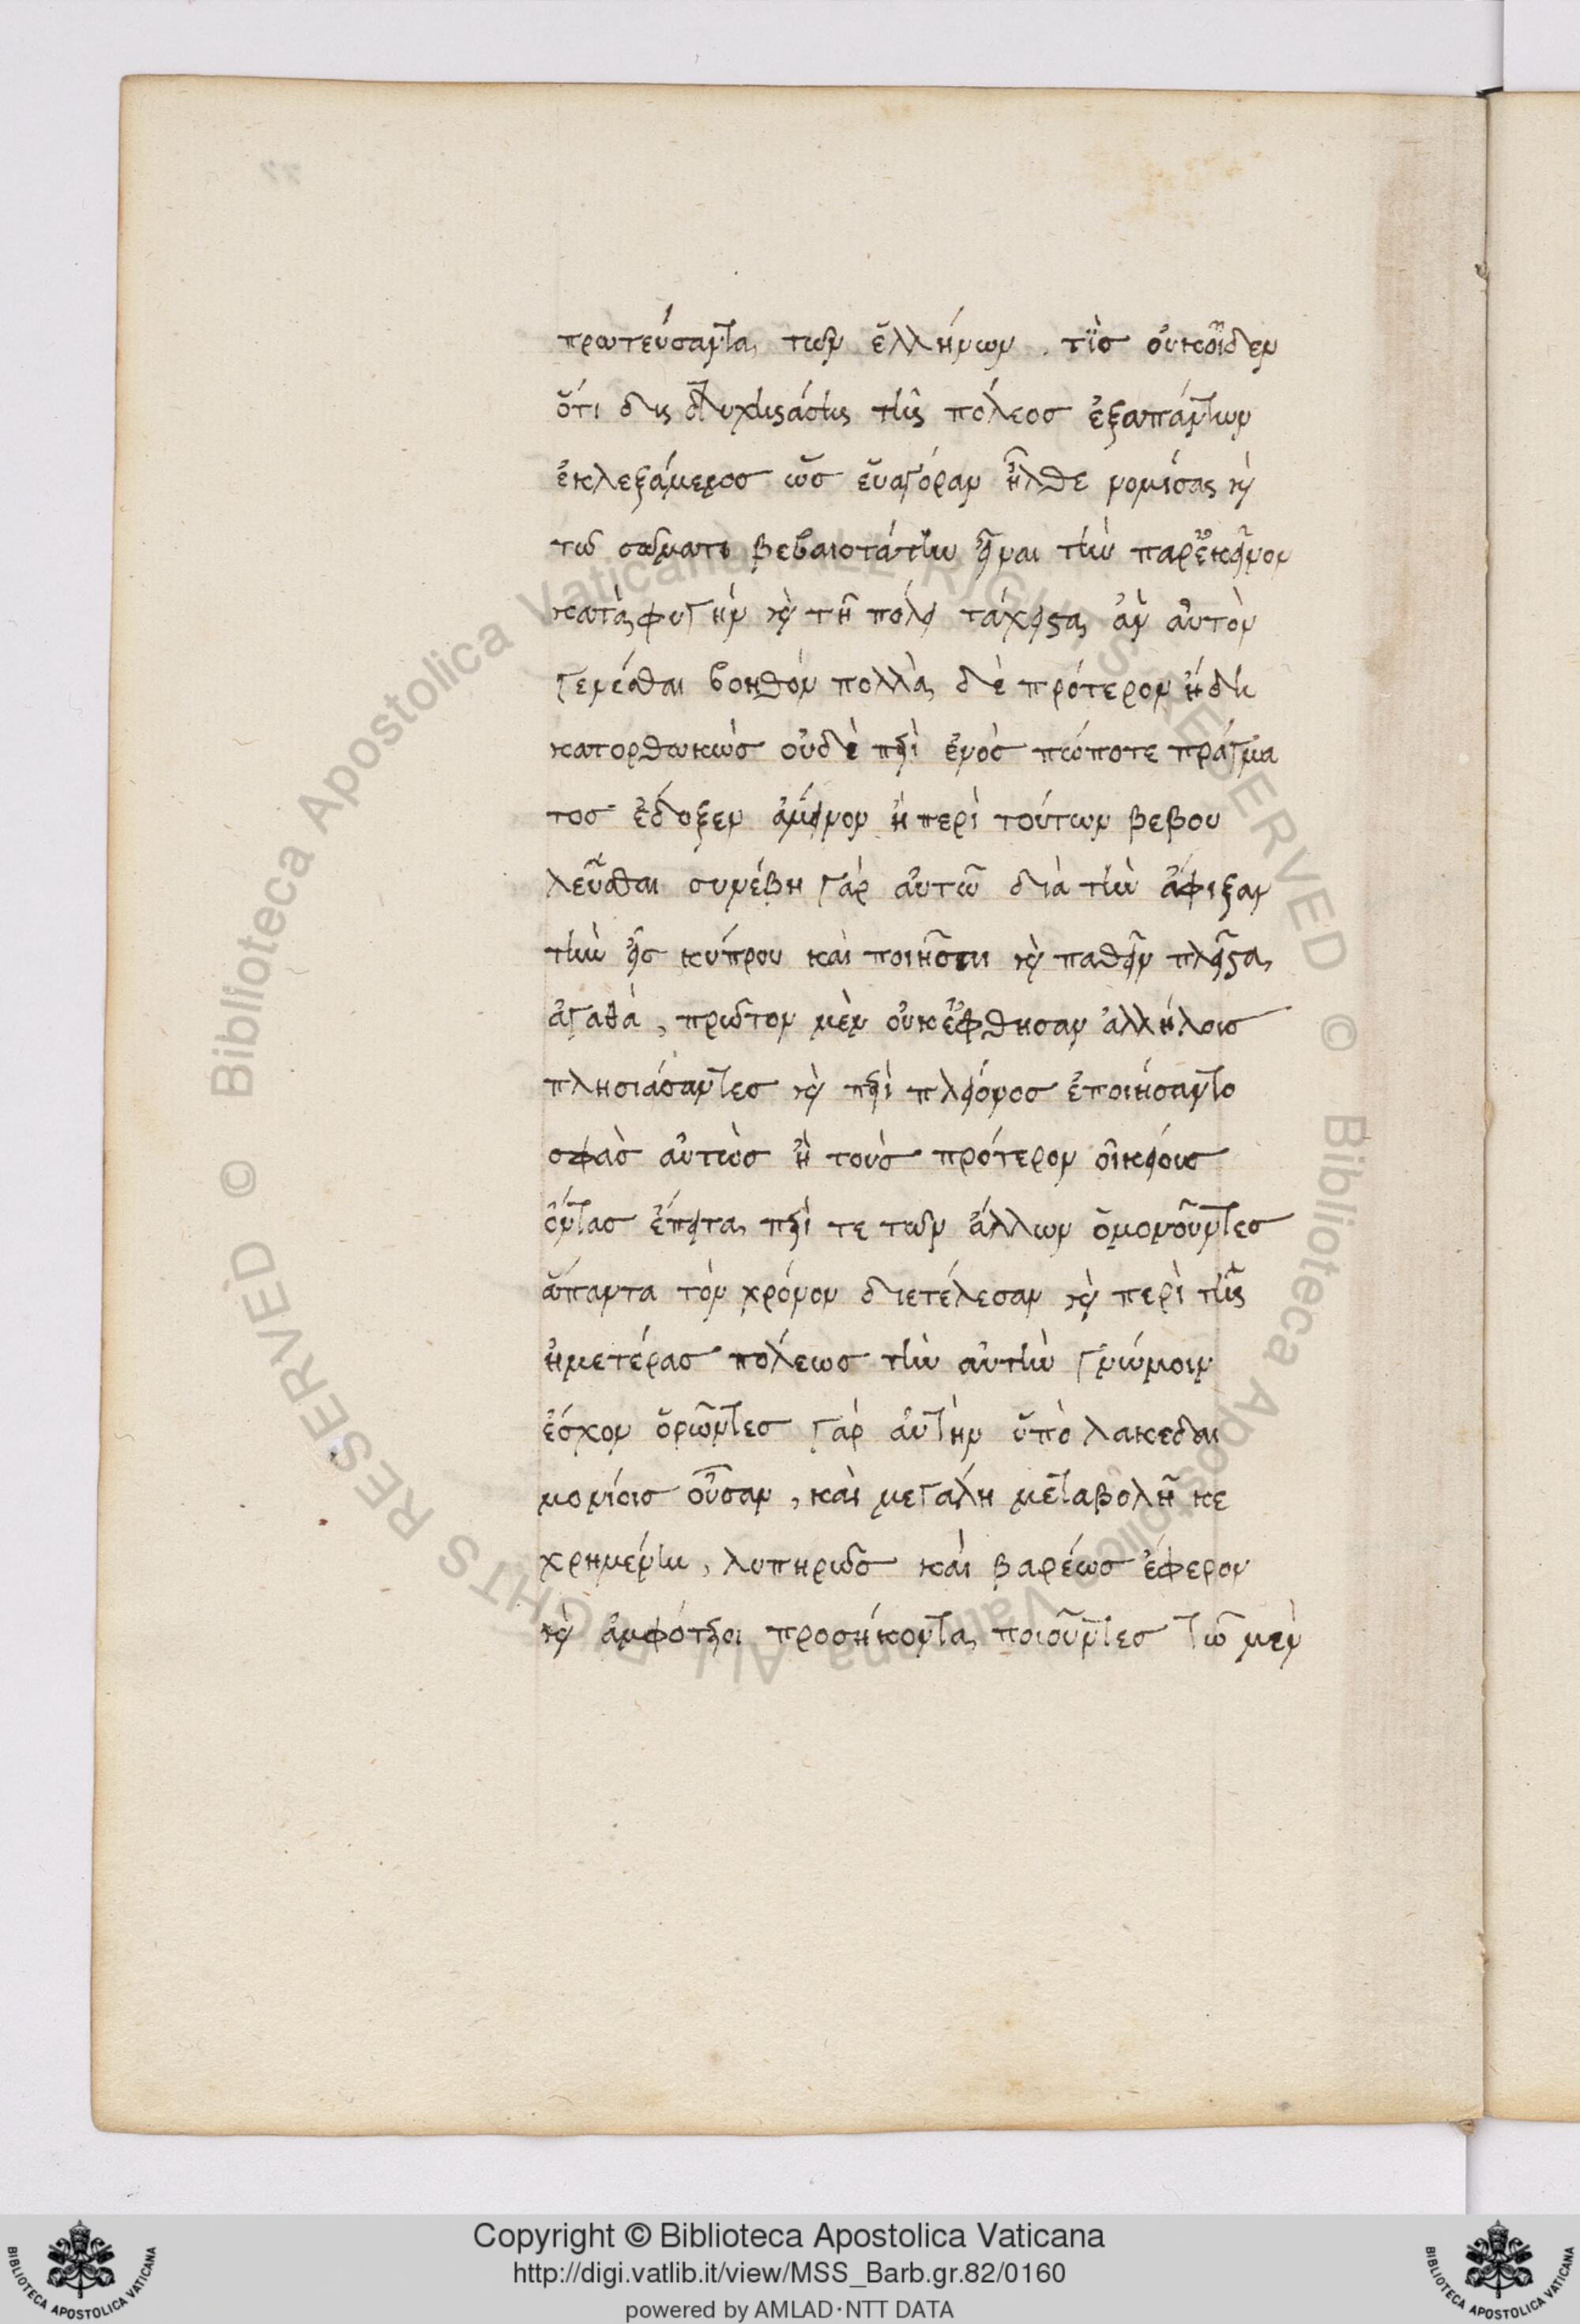 πρωτεύσαντα τῶν ἑλλήνων. τίς οὐκοῖδεν
ὅτι δυστυχησάσης τῆς πόλεος ἐξαπάντων
ἐκλεξάμενος ὡς εὐαγόραν ἦλθε νομίσας κ(αὶ)
τῶ σώματι βεβαιοτάτην εἶναι τὴν παρἐκεῖνον
καταφυγὴν κ(αὶ) τῆ πόλει τάχιστα ἂν αὐτὸν
γενέσθαι βοηθόν πολλὰ δὲ πρότερον ἤδη
κατορθωκὼς οὐδὲ περὶ ἑνὸς πώποτε πράγμα
τος ἔδοξεν ἄμεινον ἢ περὶ τούτων βεβου
λεῦσθαι συνέβη γὰρ αὐτῶ διὰ τὴν ἄφιξαν
τὴν εἰς κύπρου καὶ ποιῆσαι κ(αὶ) παθεῖν πλεῖστα
ἀγαθά, πρῶτον μὲν οὐκἔφθησαν ἀλλήλοις
πλησιάσαντες κ(αὶ) περὶ πλείονος ἐποιήσαντο
σφὰς αὐτὼς ἢ τοὺς πρότερον οἰκείους
ὄντας ἔπειτα περί τε τῶν ἄλλων ὁμονοῦντες
ἅπαντα τὸν χρόνον διετέλεσαν κ(αὶ) περὶ τῆς
ἡμετέρας πόλεως τὴν αὐτὴν γνώμοιν
ἔσχον ὁρῶντες γὰρ αὐτὴν ὑπὸ λακεδαι
μονίοις οὖσαν, καὶ μεγάλη μεταβολῆ κε
χρημένην, λυπηρῶς καὶ βαρέως ἔφερον
κ(αὶ) ἀμφότεροι προσήκοντα ποιοῦντες τῶ μὲν
Copyright © Biblioteca Apostolica Vaticana
http://digi.vatlib.it/view/MSS_Barb.gr.82/0160
powered by AMLAD·NTT DATA